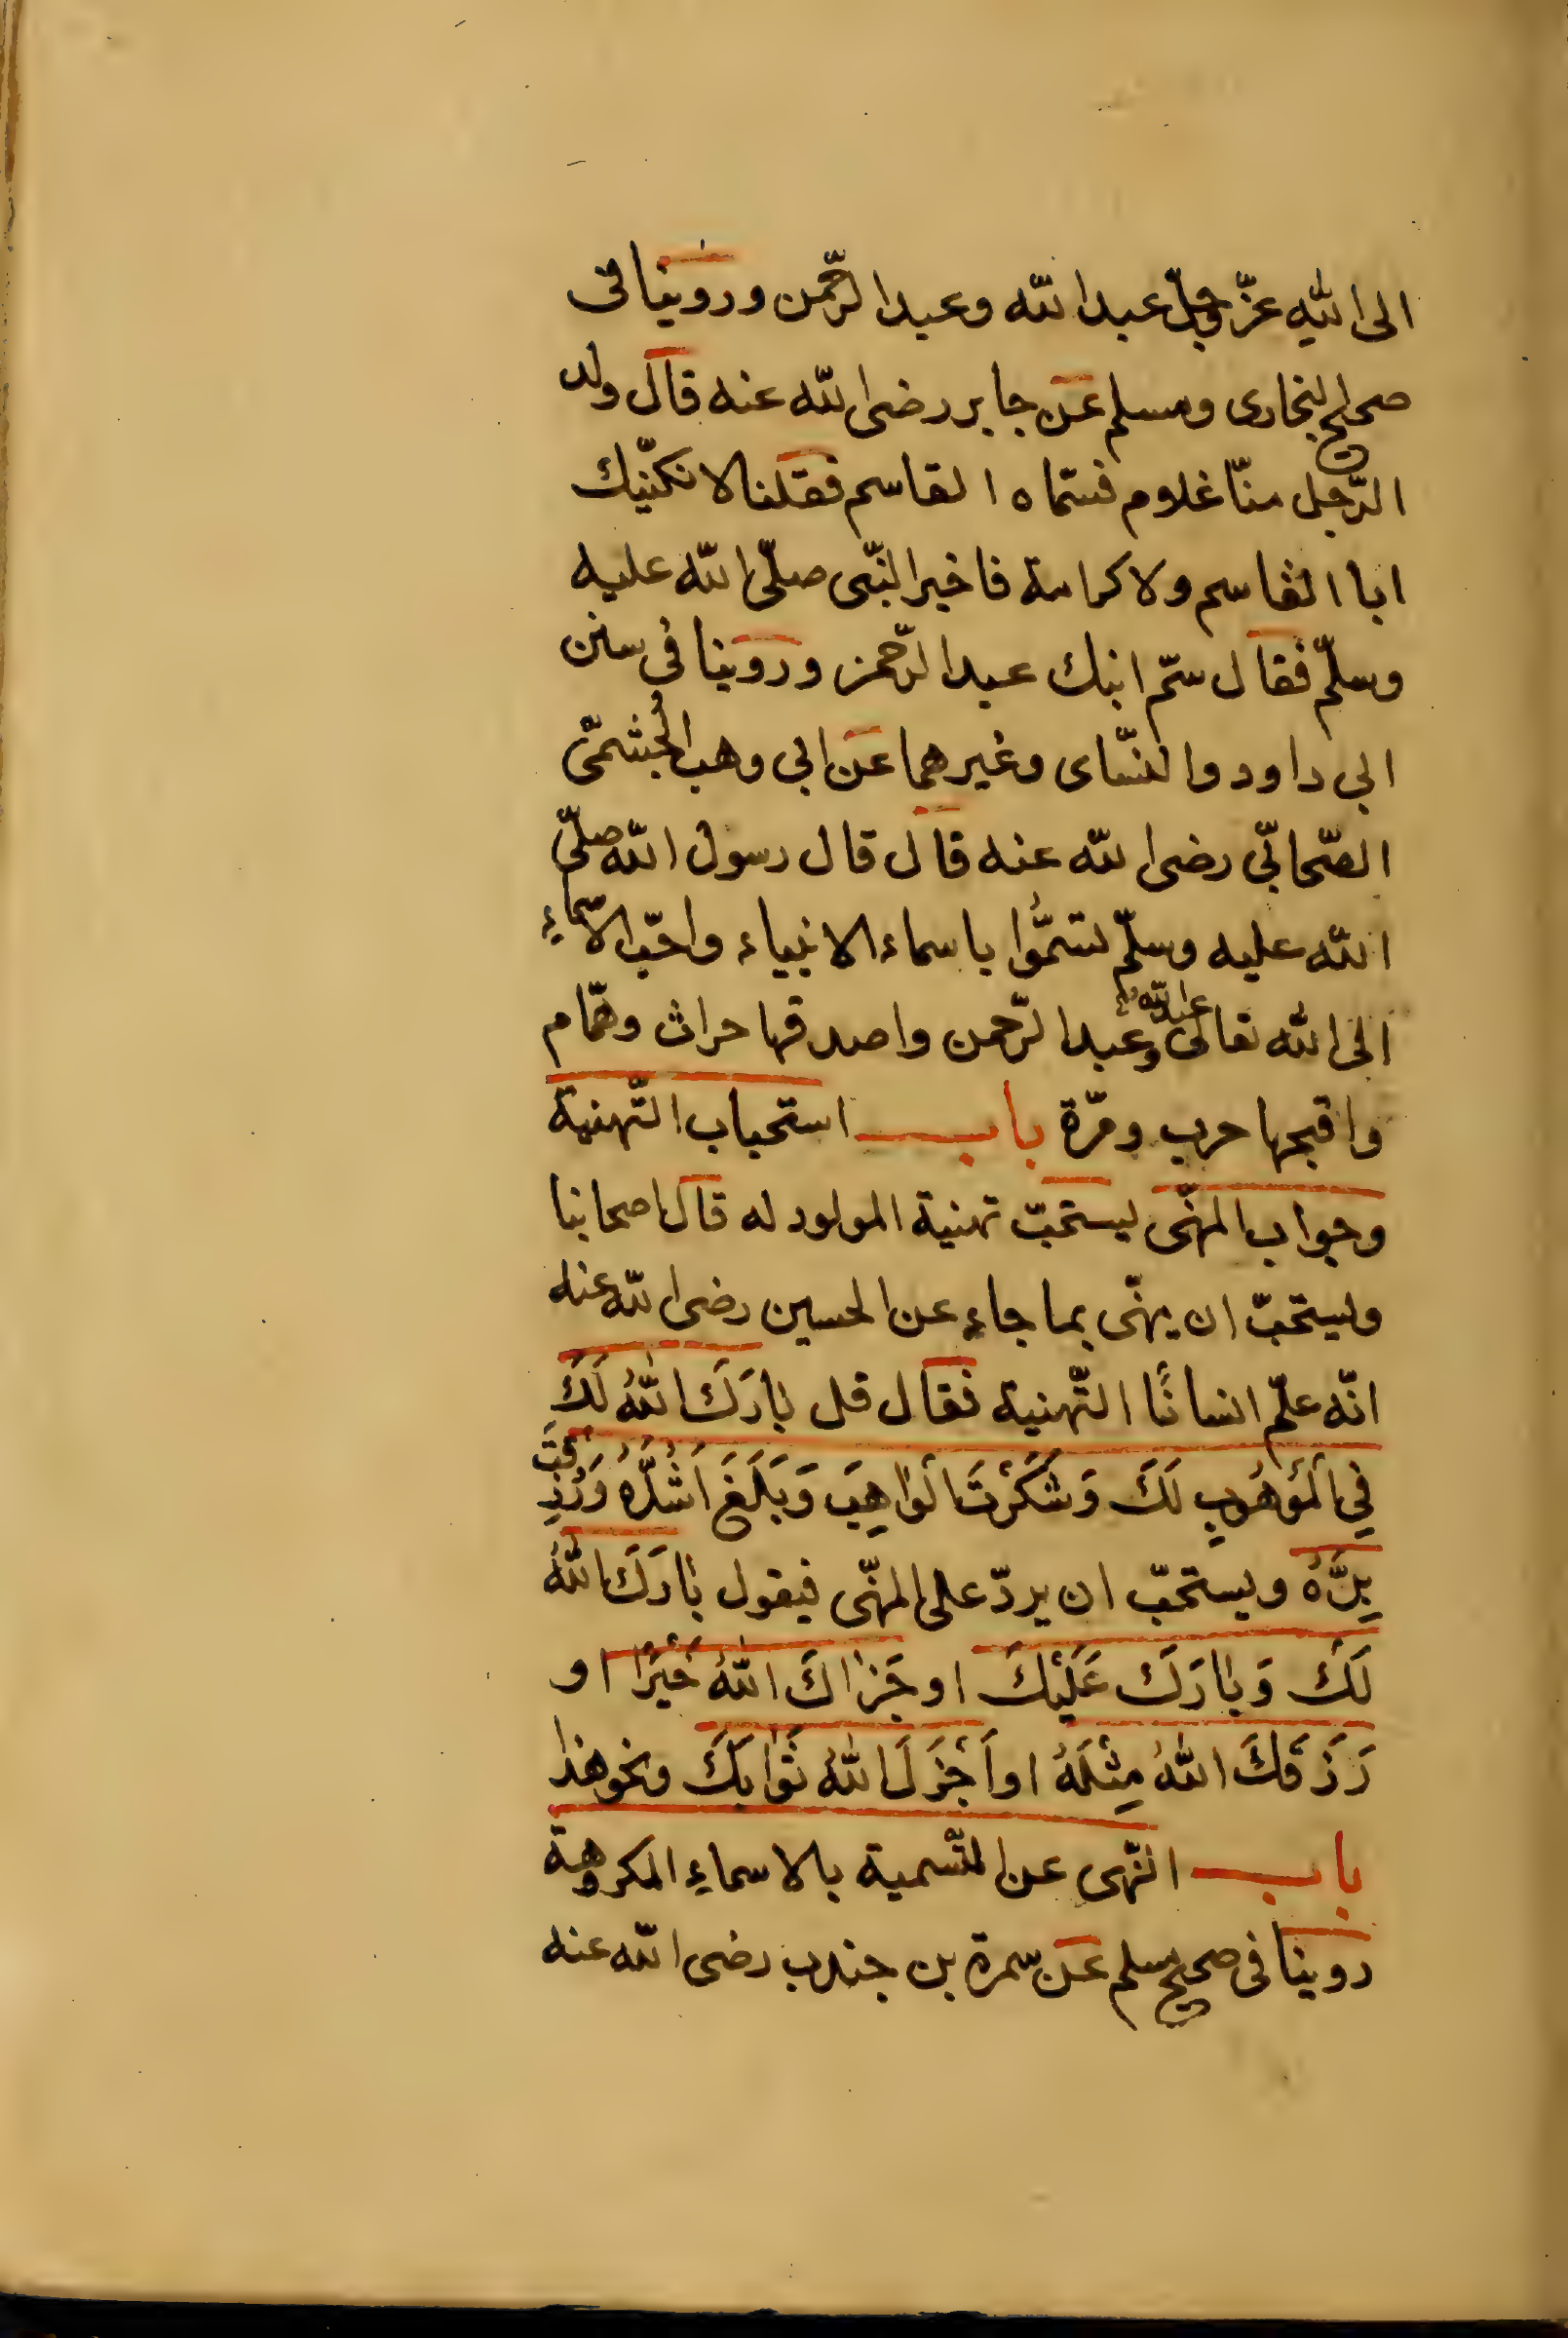 الى الله عزّ وجلّ عبد الله وعبد الرّحمن وروينا فى
صحيح البخارى ومسلم عن جابر رضى الله عنه قال ولد
الرّجل منّا غلام فسمّاه القاسم فقلنا لا نكنّيك
ابا القاسم ولا كرامة فاخبر النّبى صلّى الله عليه
وسلّم فقال سمّ ابنك عبد الرّحمن وروينا فى سنن
ابى داود والنّساى وغيرهما عن ابى وهب الجُشمىّ
الصّحابّى رضى الله عنه قال قال رسول الله صلّى
الله عليه وسلّم تسمُّوا باسماء الانبياء واحبّ الاسّماءِ
الى الله تعالى عبد الله وعبد الرّحمن واصدقها حراث وهمّام
واقبحها حرب ومرّة باب استحباب التّهنية
وجواب المهنّى يستحبّ تهنية المولود له قال اصحابنا
ويستحبّ ان يهنّى بما جاء عن الحسين رضى الله عنه
انّه علّم انسانًا التّهنية فقال قل بارَكَ اللهُ لَكَ
فِي المَوْهُوبِ لَكَ وَشَكَرْتَ الوَاهِبَ وَبَلَغَ اَشُدَّهُ وَرُزِقتَ
بِرَّهُ ويستحبّ ان يردّ على المهنّى فيقول بارَكَ اللهُ
لَكَ وَبارَكَ عَلَيْكَ او جَزاكَ اللهُ خَيْرًا او
رَزَقَكَ اللهُ مِثْلَهُ او اَجْزَلَ اللهُ ثَوابَكَ ونحو هذا
باب النّهى عن التّسمية بالاسماءِ المكروهة
روينا فى صحيح مسلم عن سمرة بن جندب رضى الله عنه